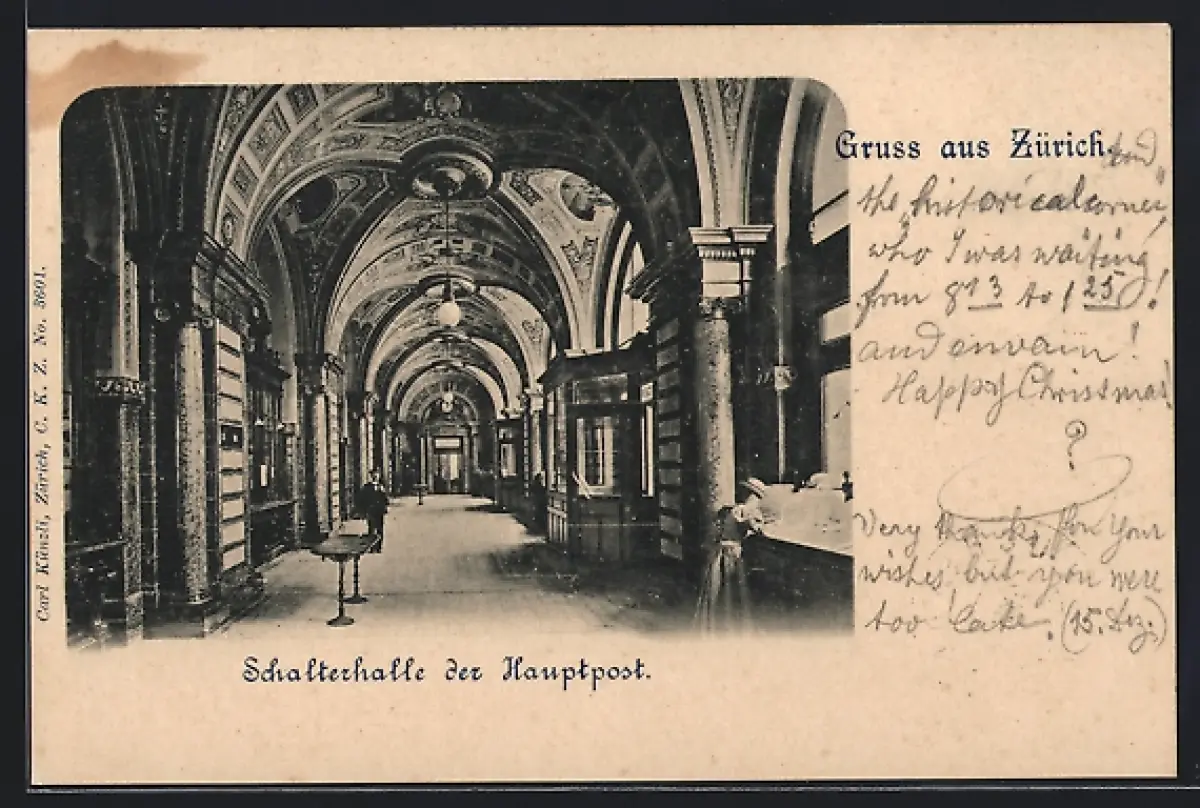 Gruss aus Zürich. and
the "historical corner"
who I was waiting
from 8 13 to 1 25!
and envain!
Happy Chrissmas
?
Very thanks for your
wishes, but you were
too late. (15. Dez.)
Schalterhalle der Hauptpost.
Carl Künzli, Zürich, C. K. Z. No. 3601.